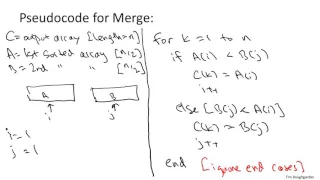 Pseudocode for Merge:
C = output array [length = n]
A = 1st sorted array [n/2]
B = 2nd " " [n/2]
A B
i j
i = 1
j = 1
for k = 1 to n
if A(i) < B(j)
C(k) = A(i)
i++
else [B(j) < A(i)]
C(k) = B(j)
j++
end [ignore end cases]
Tim Roughgarden